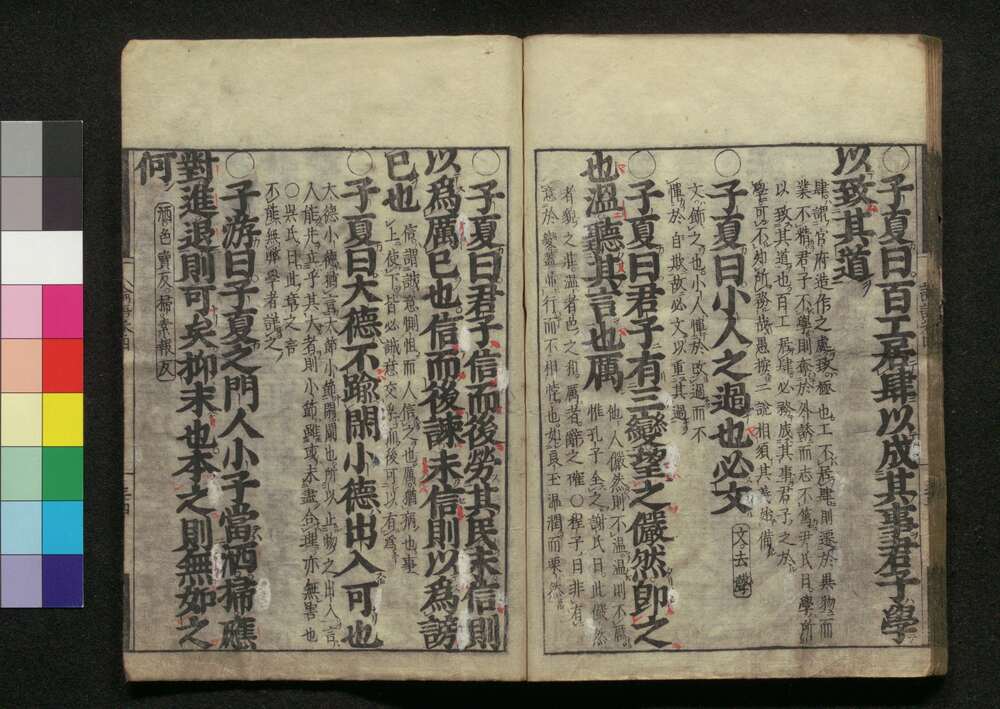 ○子夏曰百工居肆以成其事君子學
以致其道
肆謂官府造作之處致極也工不居肆則遷於異物而
業不精君子不學則奪於外誘而志不篤尹氏曰學所
以致其道也百工居肆必務成其事君子之於
學可不知所務哉愚按二說相須其義始備
○子夏曰小人之過也必文
文去聲
文飾之也小人憚於改過而不
憚於自欺故必文以重其過
○子夏曰君子有三變望之儼然即之
也溫聽其言也厲
儼然者貌之莊溫者色之和厲者辭之確○程子曰
他人儼然則不溫溫則不厲
惟孔子全之謝氏曰此
非有意於變蓋並行而不相悖也如良玉溫潤而栗然
○子夏曰君子信而後勞其民未信則
以為厲己也信而後諫未信則以為謗
己也
信謂誠意惻怛而人信之也厲猶病也事
上使下皆必誠意交孚而後可以有為
○子夏曰大德不踰閑小德出入可也
大德小德猶言大節小節閑闌也所以止物之出入言
人能先立乎其大者則小節雖或未盡合理亦無害也
○吳氏曰此章之言
不能無弊學者詳之
○子游曰子夏之門人小子當洒掃應
對進退則可矣抑末也本之則無如之
何
洒色賣反掃素報反